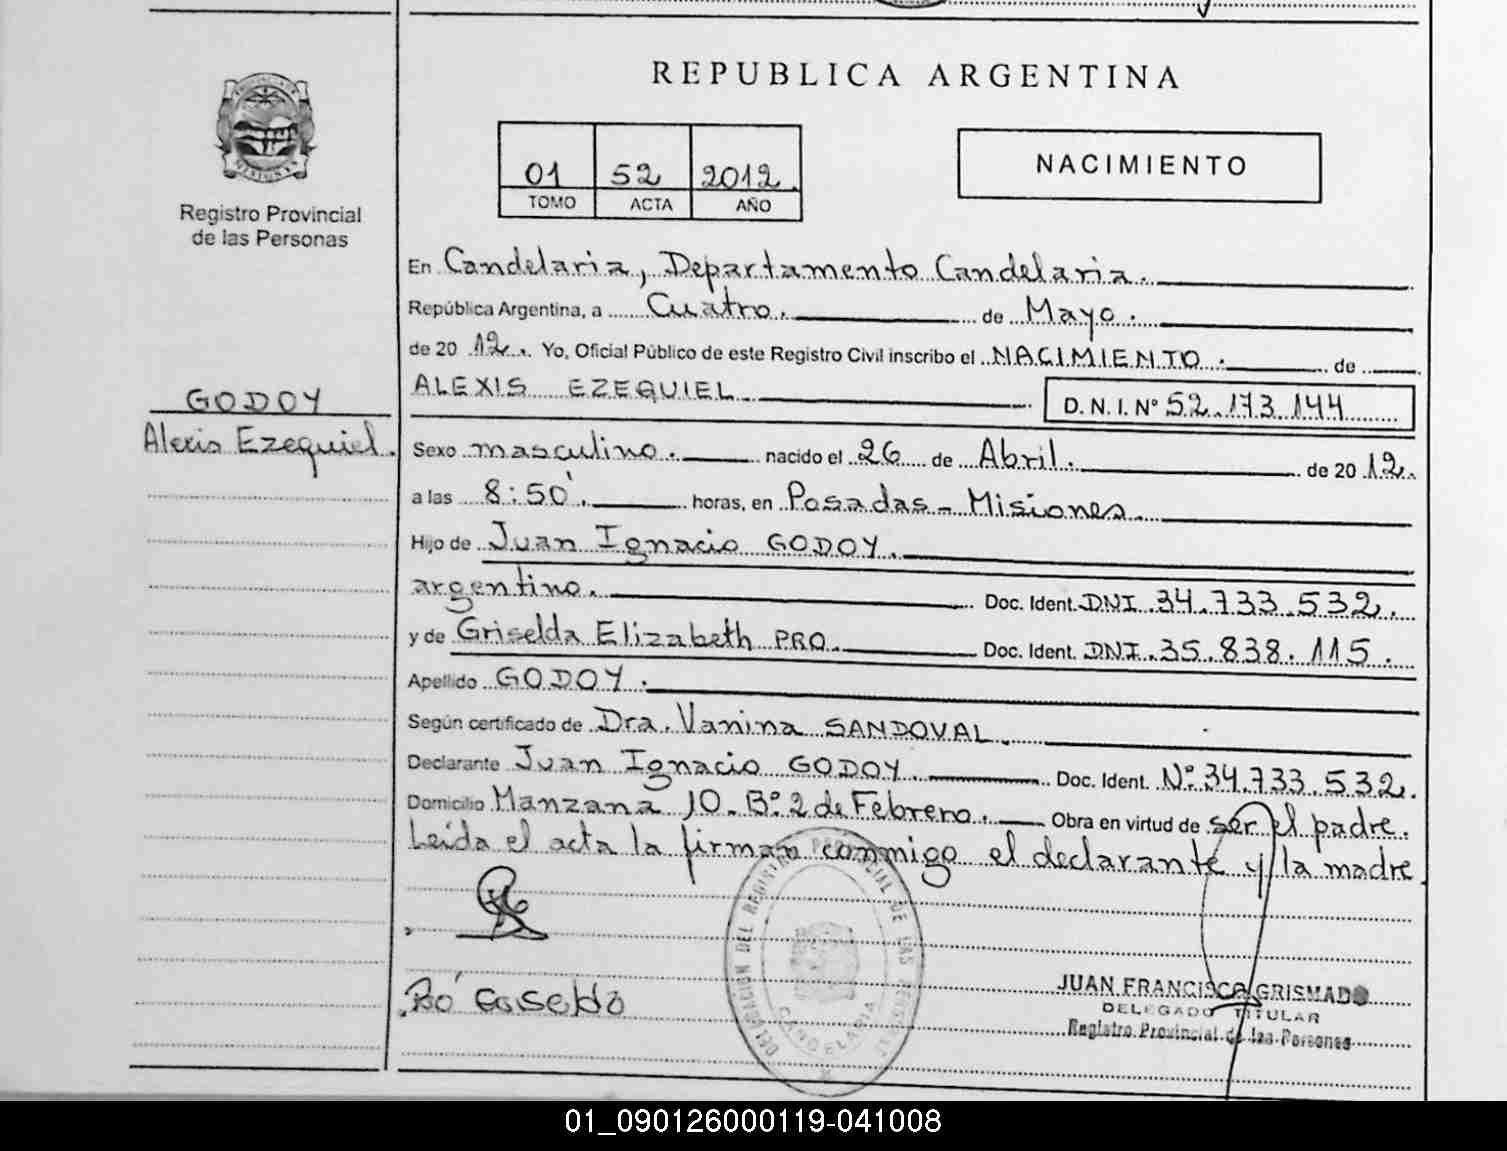 REPUBLICA ARGENTINA
01 52 2012.
TOMO ACTA AÑO
NACIMIENTO
Registro Provincial
de las Personas
GODOY
Alexis Ezequiel.
En Candelaria, Departamento Candelaria.
República Argentina, a Cuatro. de Mayo.
de 20 12. Yo, Oficial Público de este Registro Civil inscribo el NACIMIENTO. de
ALEXIS EZEQUIEL D. N. I. Nº 52.173.144
Sexo masculino. nacido el 26 de Abril. de 20 12.
a las 8:50'. horas, en Posadas - Misiones.
Hijo de Juan Ignacio GODOY.
argentino. Doc. Ident. DNI 34.733.532.
y de Griselda Elizabeth PRO. Doc. Ident. DNI.35.838.115.
Apellido GODOY.
Según certificado de Dra. Vanina SANDOVAL.
Declarante Juan Ignacio GODOY. Doc. Ident. Nº 34.733.532.
Domicilio Manzana 10. Bº 2 de Febrero. Obra en virtud de ser el padre.
Leída el acta la firman conmigo el declarante y la madre
DELEGACION DEL REGISTRO PROVINCIAL DE LAS PERSONAS
CANDELARIA
JUAN FRANCISCO GRISMADO
DELEGADO TITULAR
Registro Provincial de las Personas
01_090126000119-041008